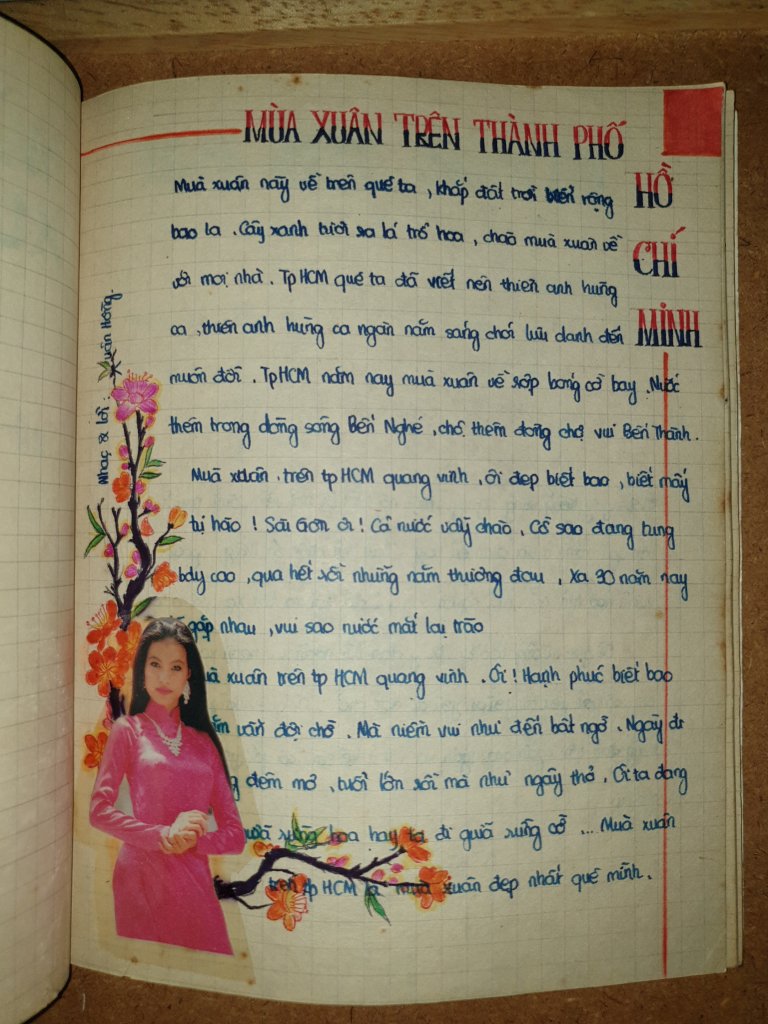 MÙA XUÂN TRÊN THÀNH PHỐ
HỒ
CHÍ
MINH
Nhạc & lời : Xuân Hồng.
Mùa xuân này về trên quê ta , khắp đất trời biển rộng
bao la . Cây xanh tươi ra lá trổ hoa , chào mùa xuân về
với mọi nhà . TpHCM quê ta đã viết nên thiên anh hùng
ca , thiên anh hùng ca ngàn năm sáng chói lưu danh đến
muôn đời . TpHCM năm nay mùa xuân về rợp bóng cờ bay . Nước
thêm trong dòng sông Bến Nghé , chợ thêm đông chợ vui Bến Thành .
Mùa xuân . trên tp HCM quang vinh . Ôi đẹp biết bao , biết mấy
tự hào ! Sài Gòn ơi ! Cả nước vẫy chào . Cờ sao đang tung
bay cao , qua hết rồi những năm thương đau , Xa 30 năm nay
gặp nhau , vui sao nước mắt lại trào
xuân trên tp HCM quang vinh . Ôi ! Hạnh phúc biết bao
vẫn đợi chờ . Mà niềm vui như đến bất ngờ . Ngày đi
đêm mơ , tuổi lớn rồi mà như ngây thơ . Ôi ta đang
rừng hoa hay ta đi giữa rừng cờ ... Mùa xuân
trên tp HCM là mùa xuân đẹp nhất quê mình .